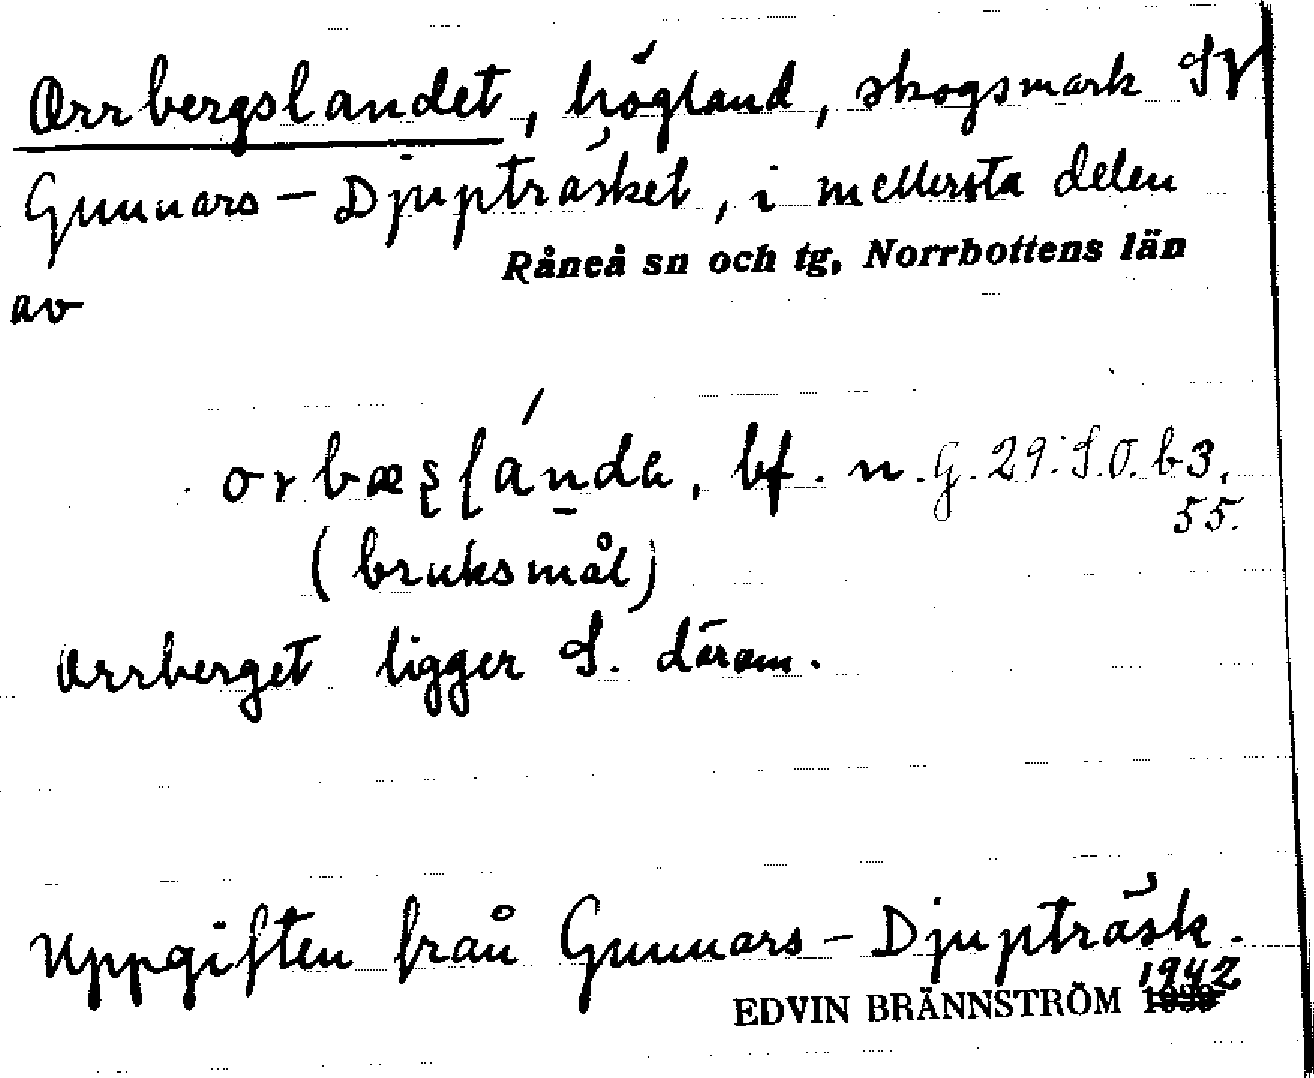 Orrbergslandet, högland, skogsmark SV
Gunnars-Djupträsket, i mellersta delen
Råneå sn och tg, Norrbottens län
av
bf. n. G. 29: S.O. b3,
55.
(bruksmål)
Orrberget ligger S. därom.
Uppgiften från Gunnars-Djupträsk.
1942
EDVIN BRÄNNSTRÖM